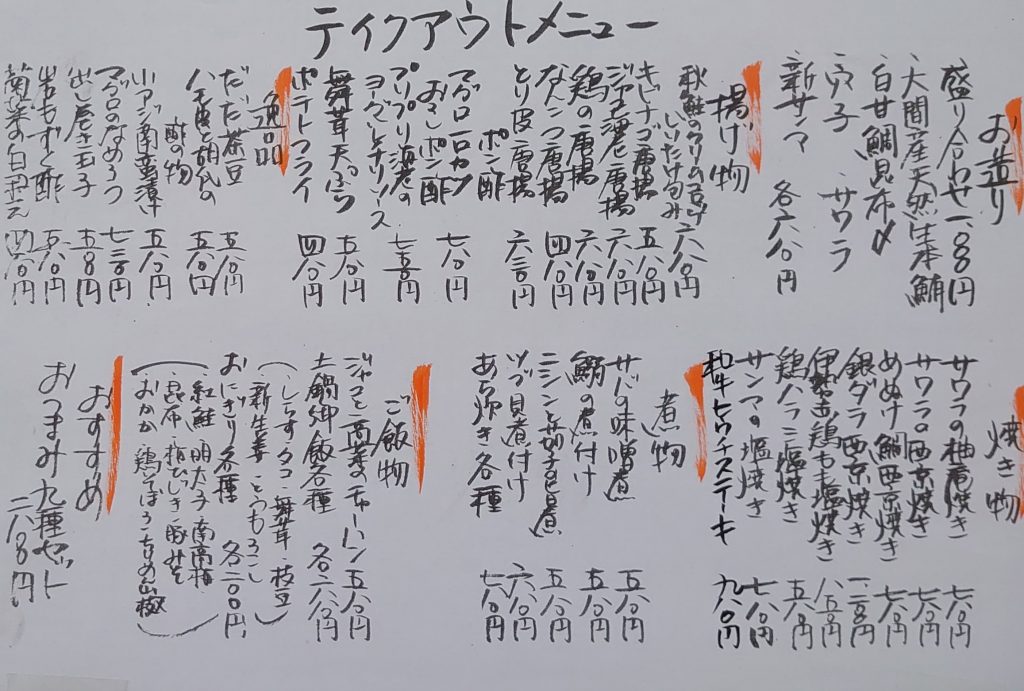 テイクアウトメニュー
お造り
盛り合わせ 一、八〇〇円
大間産天然生本鮪
白甘鯛昆布〆
穴子 サワラ
新サンマ 各六八〇円
揚げ物
秋鮭
しいたけ包み 六八〇円
きびなご唐揚 五八〇円
ジャコ海老唐揚 六八〇円
鶏の唐揚 六八〇円
なんこつ唐揚 四八〇円
とり皮唐揚 六三〇円
ポン酢
マグロ一口カツ 七八〇円
おろしポン酢
プリプリ海老の
ヨーグルトチリソース 七五〇円
舞茸天ぷら 五八〇円
ポテトフライ 四八〇円
逸品
だだ茶豆 五八〇円
ハモ皮と胡瓜の
酢の物 五八〇円
小アジ南蛮漬け 五八〇円
マグロのなめろう 七三〇円
出し巻き玉子 五八〇円
岩もずく酢 五八〇円
菊菜の白和え 四八〇円
焼き物
サワラの柚庵焼き 七八〇円
サワラの西京焼き 七八〇円
めぬけ鯛西京焼き 七八〇円
銀ダラ西京焼き 一二八〇円
伊勢赤鶏もも塩焼き 八五〇円
鶏ハラミ塩焼き 五八〇円
サンマの塩焼き 七八〇円
和牛ヒウチステーキ 九八〇円
煮物
サバの味噌煮 五八〇円
鰯の煮付け 五八〇円
ニシンと茄子旨煮 五八〇円
ツブ貝煮付け 六八〇円
あら炊き各種 七八〇円
ご飯物
ジャコと高菜のチャーハン 五八〇円
土鍋御飯各種 各二、六八〇円
(しらす タコ 舞茸 枝豆
新生姜 とうもろこし)
おにぎり各種 各二〇〇円
(紅鮭 明太子 南高梅
昆布 梅ひじき 豚みそ
おかか 鶏そぼろ ちりめん山椒)
おすすめ
おつまみ九種セット
二八〇〇円